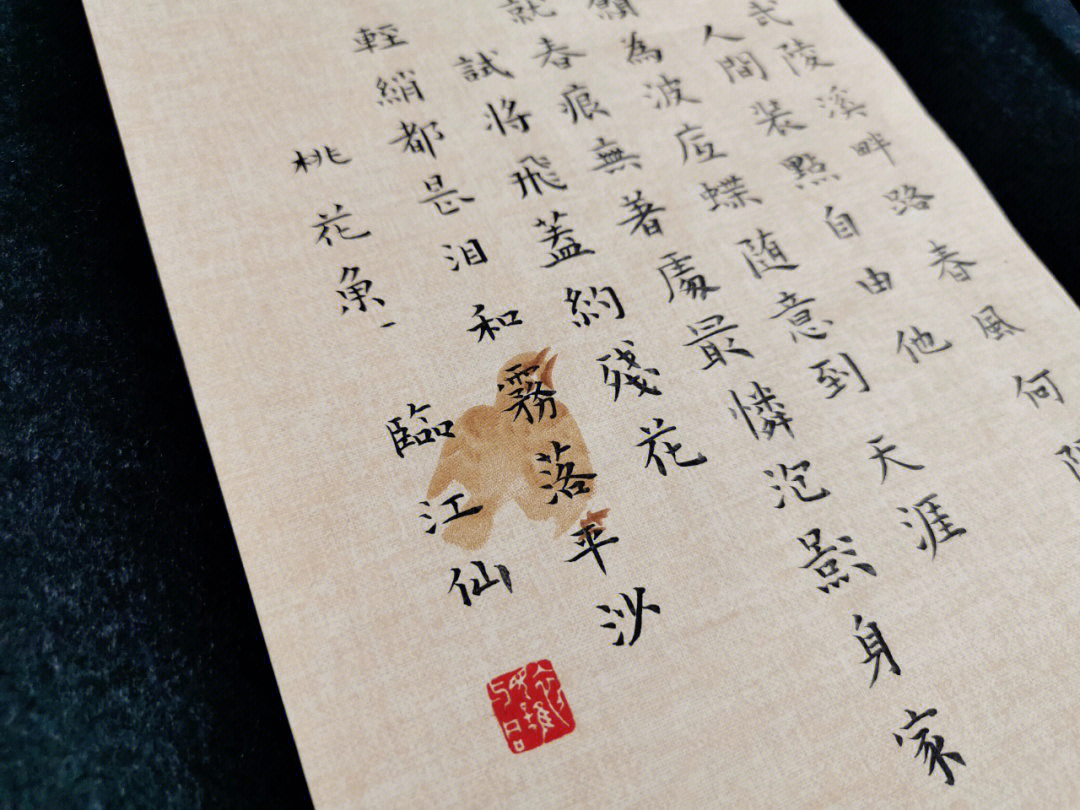 陵溪畔路春風何
人間裝點自由他
願為波底蝶随意到天涯
就春痕無著處最憐泡影身家
試將飛蓋約殘花
輕綃都是泪和霧落平沙
桃花魚 臨江仙